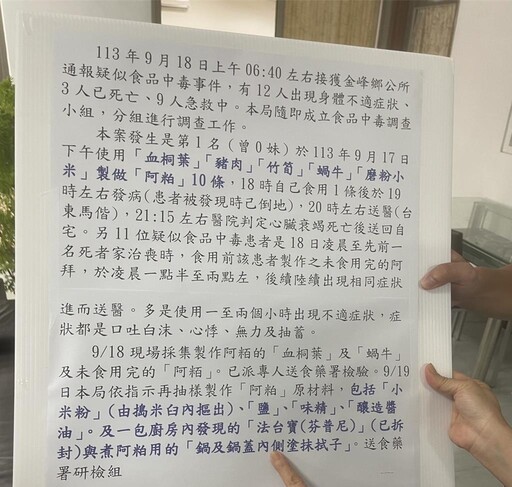 113年9月18日上午06:40左右接獲金峰鄉公所
通報疑似食品中毒事件，有12人出現身體不適症狀、
3人已死亡、9人急救中。本局隨即成立食品中毒調查
小組，分組進行調查工作。
本案發生是第1名（曾O妹）於113年9月17日
下午使用「血桐葉」「豬肉」「竹筍」「蝸牛」「磨粉小
米」製做「阿粨」10條，18時自己食用1條後於19
時左右發病(患者被發現時已倒地)，20時左右送醫(台
東馬偕)，21:15左右醫院判定心臟衰竭死亡後送回自
宅。另11位疑似食品中毒患者是18日凌晨至先前一
名死者家治喪時，食用前該患者製作之未食用完的阿
拜，於凌晨一點半至兩點左，後續陸續出現相同症狀
進而送醫。多是使用一至兩個小時出現不適症狀，症
狀都是口吐白沫、心悸、無力及抽蓄。
9/18現場採集製作阿粨的「血桐葉」及「蝸牛」
及未食用完的「阿粨」。已派專人送食藥署檢驗。9/19
日本局依指示再抽樣製作「阿粨」原材料，包括「小
米粉」(由搗米臼內摳出)、「鹽」、「味精」、「釀造醬
油」。及一包廚房內發現的「法台寶(芬普尼)」(已拆
封)與煮阿粨用的「鍋及鍋蓋內側塗抹拭子」。送食藥
署研檢組